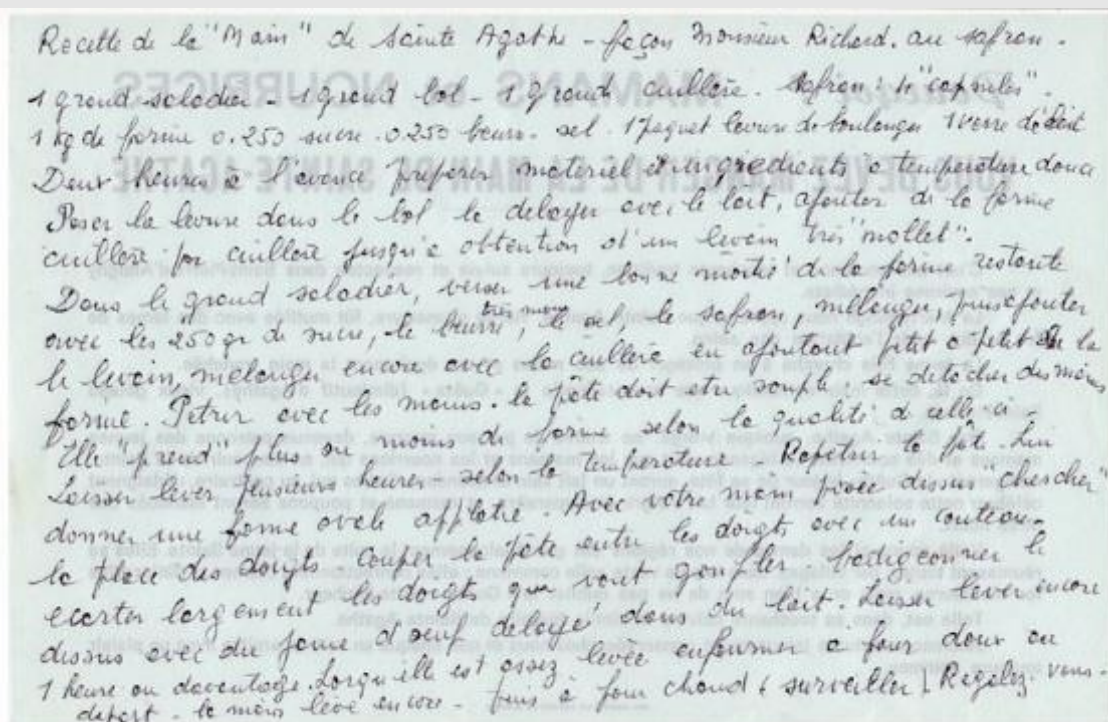 Recette de la "Main" de Sainte Agathe - façon Monsieur Richard. au safran.
1 grand saladier - 1 grand bol - 1 grand cuillère. Safran: 4 "capsules".
1 kg de farine 0.250 sucre. 0.250 beurre. sel. 1 paquet levure de boulanger 1 verre de lait
Deux heures à l'avance préparer matériel et ingrédients à température douce
Poser la levure dans le bol la delayer avec le lait, ajouter de la farine
cuillère par cuillère jusqu'à obtention d'un levain très "mollet".
Dans le grand saladier, verser une bonne moitié de la farine restante
avec les 250 gr de sucre, le beurre, le sel, le safran, mélanger puis ajouter
le levain, mélanger encore avec la cuillère en ajoutant petit à petit de la
farine. Petrir avec les mains. la pâte doit etre souple, se detacher des mains
Elle prend plus ou moins de farine selon la qualité de celle ci.
Laisser lever plusieurs heures selon la temperature - Repetrir la pâte. Lui
donner une forme ovale applatie. Avec votre main posée dessus "chercher"
la place des doigts couper la pâte entre les doigts avec un couteau.
ecarter largement les doigts qui vont gonfler, badigeonner le
dessus avec du jaune d'oeuf delayé dans du lait. Laisser lever encore
1 heure ou davantage. Lorqu'elle est assez levée enfourner a four doux au
depart - la main leve encore - puis à four chaud (surveiller) Regalez-vous -